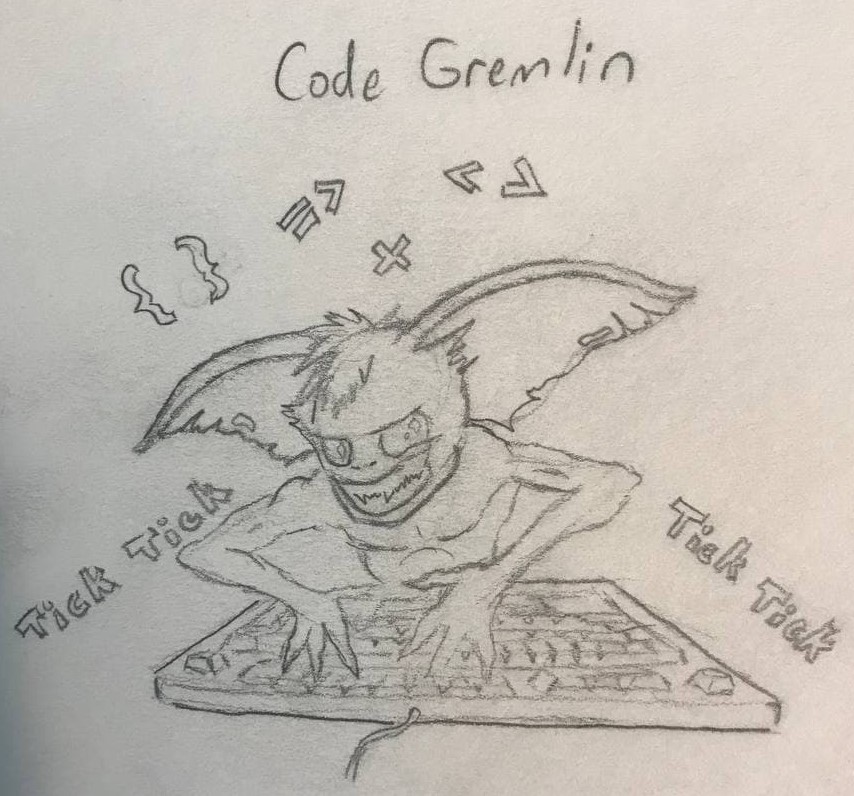 Code Gremlin
< >
=>
{ }
×
Tick Tick
Tick Tick